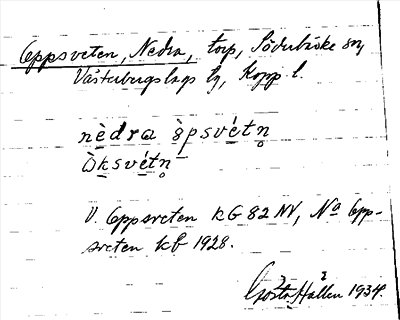 Oppsveten, Nedra, torp, Söderbärke sn,
Västerbergslags tg, Kopp. l.
nèdra òpsvétn̥
òksvétn̥
V. Oppsveten kG 82 NV, Na Opp-
sveten kb 1928.
Gösta Hallen 1934.